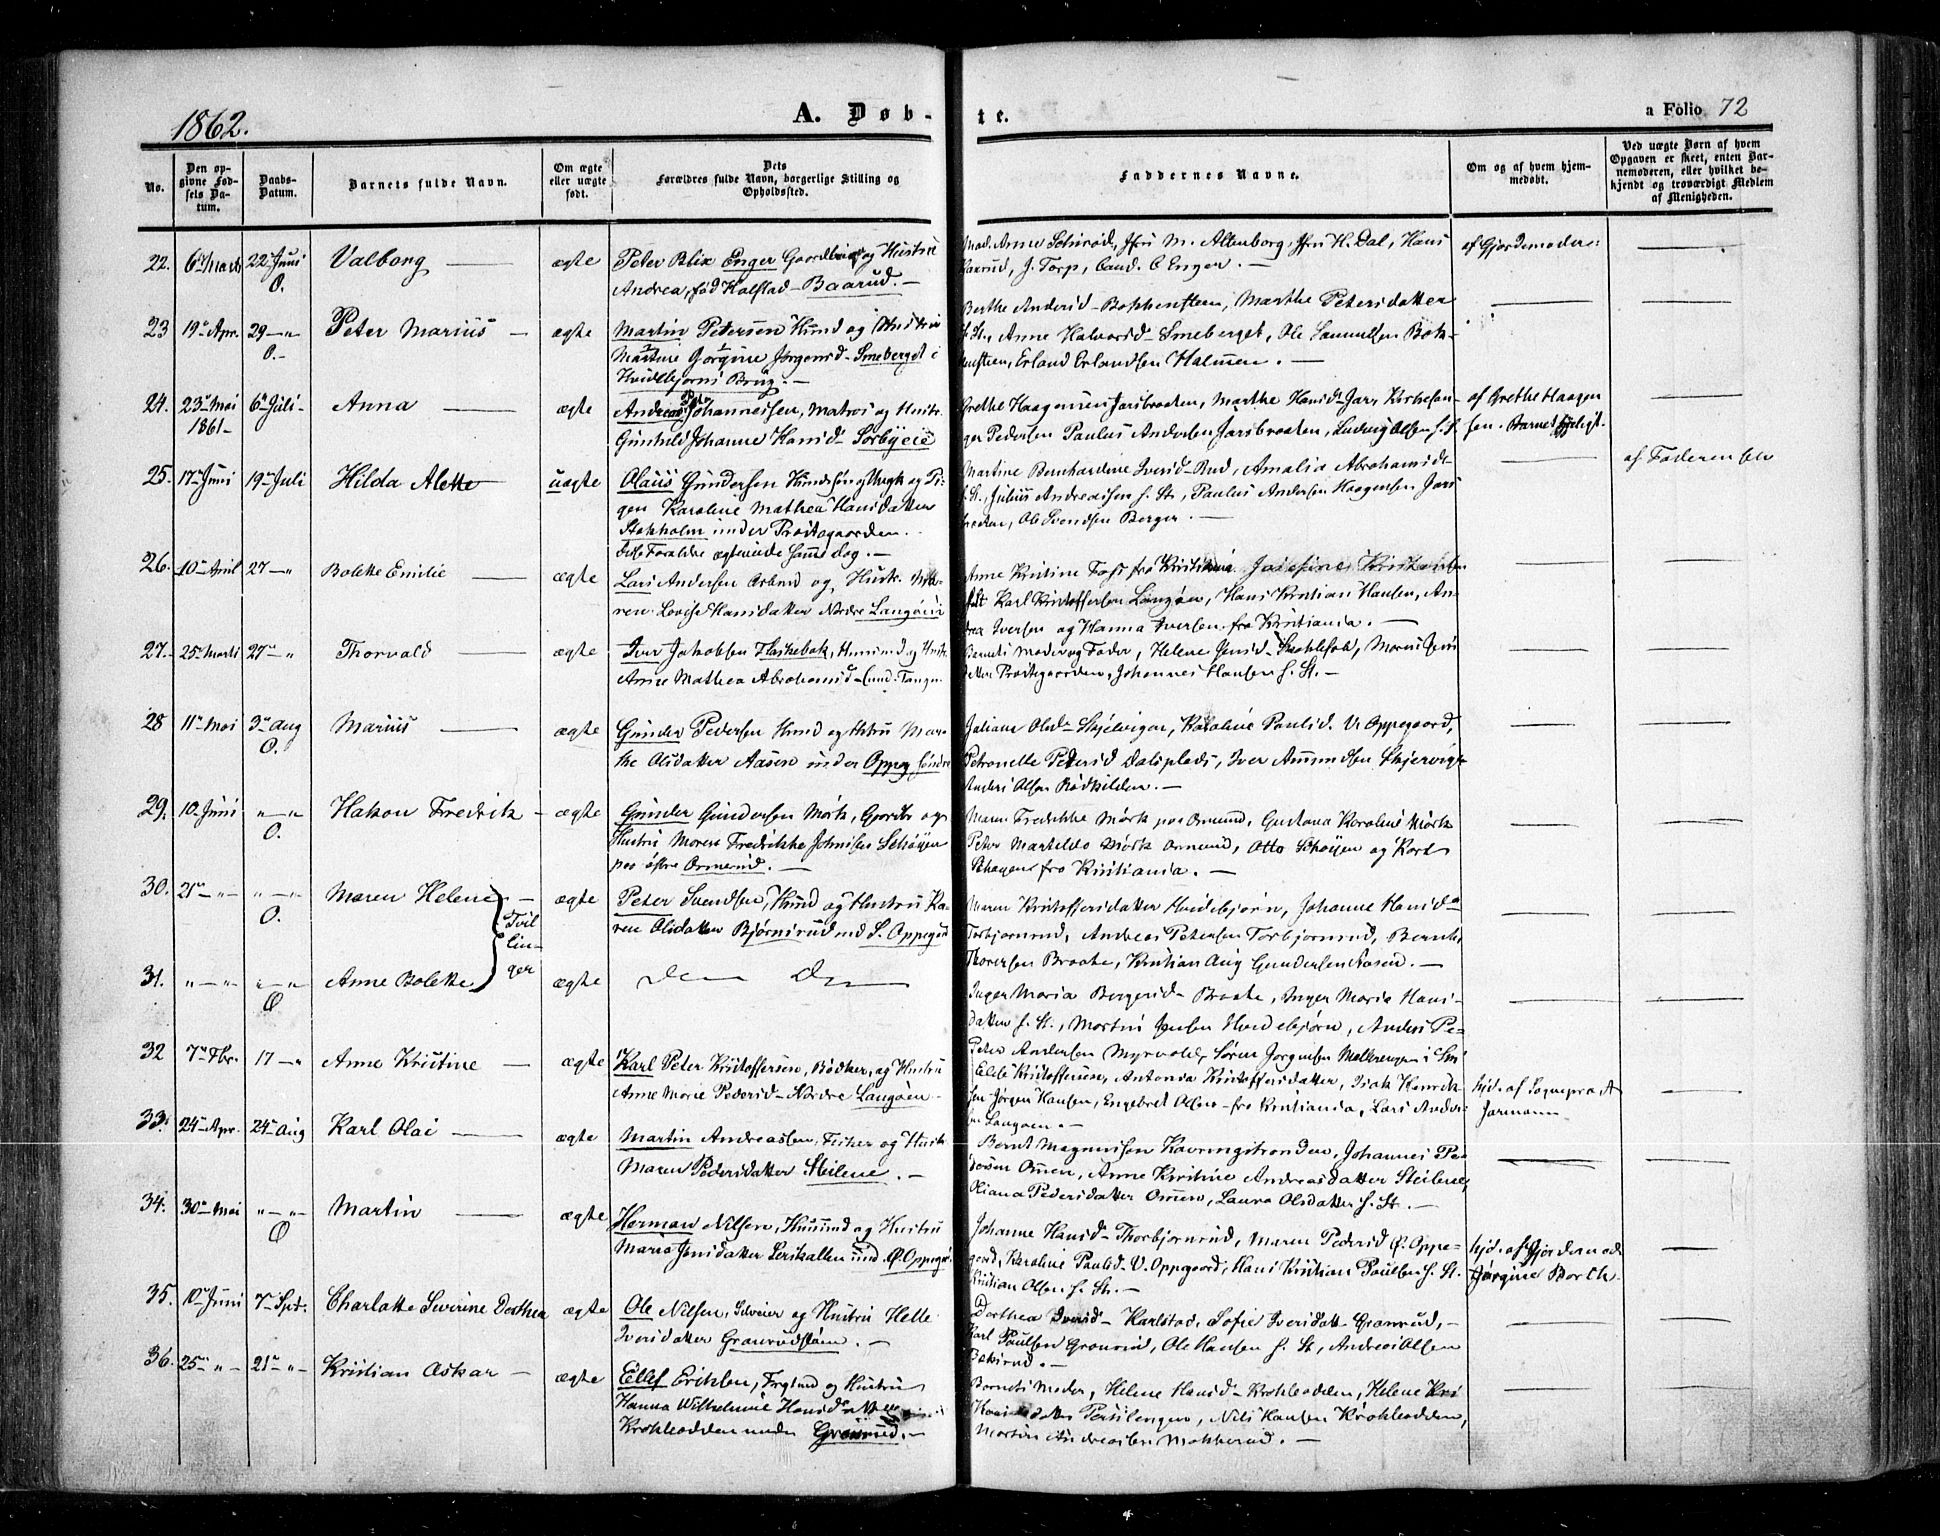 1862.
A. Døb-
te.
a Folio 72
No.
Den op-
givne Fød-
sels Da-
tum.
Daabs-
Datum.
Barnets fulde Navn.
Om ægte
eller uægte
født.
Dets
Forældres fulde Navn, borgerlige Stilling og
Opholdssted.
Faddernes Navne.
Om og af hvem hjem-
medøbt.
Ved uægte Børn af hvem
Opgaven er skeet, enten Bar-
nemoderen, eller hvilket be-
kjendt og troværdigt Medlem
af Menigheden.
22. 6te Marts 22 Juni Valborg — ægte Peter Blix Enger og Hustru
O. Andrea, fød Halstad - Baarud. —
M. Altenborg, H. Dal, Hans
J. Torp, Cand. C Enger. —
af Gjordemoder
23 19de Apr. 29 — " Peter Marius — ægte Martin Petersen Husmd og Hustru
O. — Jørgensd - Smeberget i
Hvidebjørns Brug. —
Berthe Andersd - Bokkensteen, Marthe Petersdatter
S. St., Anne Halvorsd - Smeberget, Ole Samuelsen Bok-
kensteen, Erland Erlandsen Halmen. —
24. 23de Mai 6te Juli - Anna — ægte Andreas Johannessen, Matros og Hustr.
1861 — Gunhild Johanne Hansd. Sørbyeie
Grethe Haagensen Jarsbraaten, Marthe Hansd. Jar,
Pedersen Paulus Andersen Jarsbraaten, Ludvig Olsen S. St.
af Grethe Haagen
sen. Barnet
25. 17de Juni 19de Juli Hilda Alette uægte Olaus Gundersen og Pi-
gen Karoline Mathea Hansdatter
Stokholm under Prestegaarden.
Disse Forældre ægteviede samme dag. —
Martine Bernhardine Iversd - Rud, Amalia Abrahamsd.
S. St., Julius Andreassen S. St., Paulus Andersen Haagensen Jars
braaten, Ole Svendsen Berger. —
af Faderen selv
26. 10de April 27 — " Bolette Emilie — ægte Lars Andersen Arbmd og Hustr.
ren Lovise Hansdatter Nordre Langøen
Anne Kristine Foss fra Kristiania. Josefine
Karl Kristoffersen Langøen, Hans Kristian Hansen, An-
drea Iversen og Hanna Iversen fra Kristiania. —
27. 25de Marts 27de " Thorvald — ægte Iver Jakobsen Husmd og Hustr.
Anne Mathea Abrahamsd - Tangen
Barnets Moder og Fader, Helene Jensd - Maren Jens
datter Prestegaarden, Johannes Hansen S. St. —
28 11te Mai 3de Aug Marius — ægte Gunder Pedersen Husmd og Hstru Mar-
O. the Olsdatter Aasen under Oppeg søndre
Juliane Olsd - Skjelvigen, Karoline Paulsd. V. Oppegaard,
Petronelle Petersd Dalsplads, Iver Amundsen Skjervigs
Anders Olsen Rødkilden. —
29. 10 Juni " — " Hakon Fredrik - ægte Gunder Gundersen Mørk, Gaardbr og
O. Hustru Maren Fredrikke Johnsen Schøyen
paa østre Ormerud. —
Maren Fredrikke Mørk paa Ormerud, Gustava Karoline Mørk
Peter Mathilde Mørk Ormerud, Otto Schøyen og Karl
fra Kristiania. —
30. 21de — " " — " Maren Helene — ægte Peter Svendsen, Husmd og Hustru Ka-
O. ren Olsdatter Bjørnsrud med S. Oppegrd
Tvil
lin-
ger
Maren Kristoffersdatter Hvidebjørn, Johanne Hansd
Torbjørnrud, Andreas Petersen Torbjørnrud, Bernt
Thoresen Braate, Kristian Aug Gundersen Aasen. —
31. " — " " — " Anne Bolette ægte
O
Inger Maria Bergersd - Braate, Inger Maria Hans-
datter S. St., Martin Jensen Hvidebjørn, Anders Pe-
32 7de Fbr. 17 — " Anne Kristine — ægte Karl Peter Kristoffersen, Bødker, og Hustru
Anne Marie Pedersd - Nordre Langøen -
Peter Andersen Myrvold, Søren Jørgensen
Kristoffersen, Antonia Kristoffersdatter, Isak Henrik-
sen Jørgen Hansen, Engebret Olsen fra Kristiania, Lars Anders-
sen Langøen. —
hjd. af Sogneprest
Jarmann —
33. 24de Apr. 24de Aug Karl Olai — ægte Martin Andreassen, Fisker og Hustr.
Maren Pedersdatter Steilene. —
Bernt Magnussen Kavringstranden, Johannes Pe-
dersen Ommen, Anne Kristine Andreasdatter Steilene,
Oliana Pedersdatter Ommen, Laura Olsdatter S. St. —
34. 30de Mai " — " Martin — ægte Herman Nilsen, Husmd og Hustru
O Maria Jensdatter und. Ø. Oppegrd
Johanne Hansd - Thorbjørnrud, Maren Pedersd Ø. Oppe-
gaard, Karoline Paulsd - V. Oppegaard, Hans Kristian Paulsen S. St.
Kristian Olsen S. St. —
hjd. af Gjordemod.
Jørgine Borch.
35. 10de Juni 7de Spt. Charlotte Severine Dorthea ægte Ole Nilsen, Selveier og Hustru Helle
Iversdatter Granrudstøen. —
Dorthea Iversd - Karlstad, Sofie Iversdatt - Granrud, -
Karl Paulsen Granrud, Ole Hansen S. St, Andreas Olsen
Bakrud. —
36. 25de " — 21de " — Kristian Oskar — ægte Ellef Eriksen, og Hustru
Hanna Wilhelmine Hansdatter
Krokleodden under Granrud. —
Barnets Moder, Helene Hansd - Krokleodden, Helene Kri
Nils Hansen Krokleodden,
Martin Andreassen Mokkerud. —